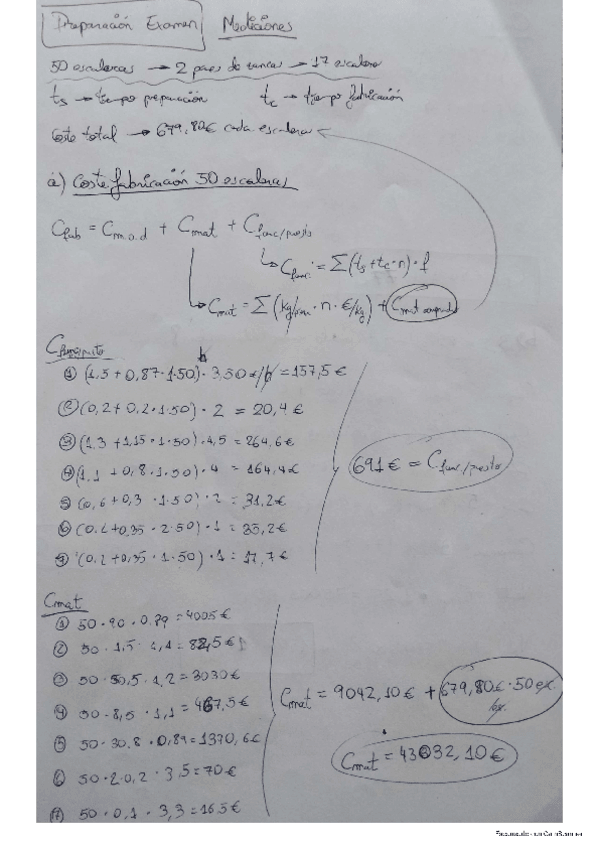 Preparación Examen Mediciones
50 escaleras → 2 pares de zancas → 17 escalera
ts → tiempo preparación tc → tiempo fabricación
Coste total → 679,80€ cada escalera
a) Coste fabricación 50 escaleras
Cfab = Cm.o.d + Cmat + Cfunc/puesto
↳ Cfunc. = Σ(ts + tc · n) · f
↳ Cmat = Σ(kg/pieza · n · €/kg) + Cmat comprado
h
① (1,5 + 0,87 · 1 · 50) · 3,50 €/h = 157,5 €
② (0,2 + 0,2 · 1 · 50) · 2 = 20,4 €
③ (1,3 + 1,15 · 1 · 50) · 4,5 = 264,6 €
④ (1,1 + 0,8 · 1 · 50) · 4 = 164,4 €
⑤ (0,6 + 0,3 · 1 · 50) · 2 = 31,2 €
⑥ (0,2 + 0,35 · 2 · 50) · 1 = 35,2 €
⑦ (0,2 + 0,35 · 1 · 50) · 1 = 17,7 €
691 € = Cfunc/puesto
Cmat
① 50 · 90 · 0,89 = 4005 €
② 50 · 1,5 · 1,1 = 82,5 €
③ 50 · 50,5 · 1,2 = 3030 €
④ 50 · 8,5 · 1,1 = 467,5 €
⑤ 50 · 30,8 · 0,89 = 1370,6 €
⑥ 50 · 2 · 0,2 · 3,5 = 70 €
⑦ 50 · 0,1 · 3,3 = 16,5 €
Cmat = 9042,10 € + 679,80 € · 50 esc.
Cmat = 43032,10 €